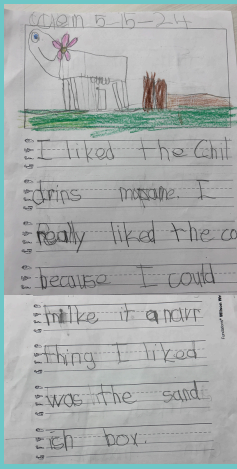 5-15-24
I liked the Chil
drins musame. I
really liked the co
because I could
milke it a narr
thing I liked
was the sand
ich box.